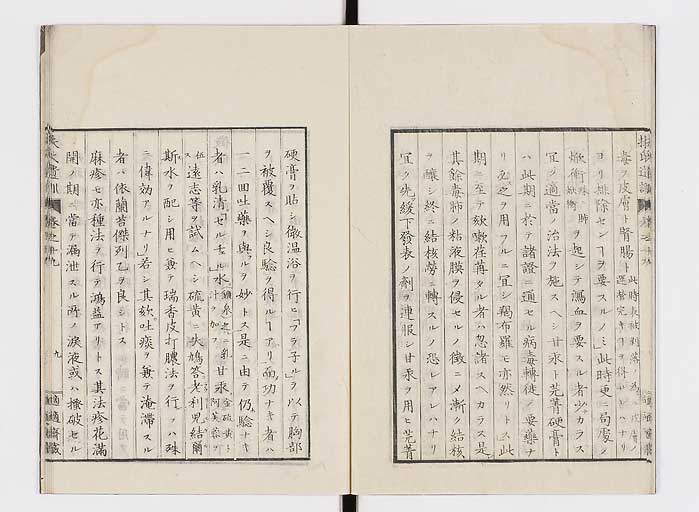 毒ヲ皮膚ト腎腸ト
ヨリ排除センヿヲ要スルノミ此時更ニ局處ノ
焮衝ヲ起シテ瀉血ヲ要スル者少カラス
宜ク適當ノ治法ヲ施スヘシ甘汞ト芫菁硬膏ト
ハ此期ニ於テ諸證ニ通セル病毒轉徙ノ要藥ナ
リ互之ヲ用フルニ宜シ羯布羅モ亦然リトス此
期ニ至テ欬嗽荏苒タル者ハ忽諸スヘカラス是レ
其餘毒肺ノ粘液膜ヲ侵セルノ徴ニメ漸ク結核
ヲ釀シ終ニ結核勞ニ轉スルノ恐レアレハナリ
宜ク先ツ緩下發表ノ劑ヲ連服シ甘汞ヲ用ヒ芫菁
硬膏ヲ貼シ微温浴ヲ行ヒ「フラ子ル」ヲ以テ胸部
ヲ被覆スヘシ良驗ヲ得ルヿアリ而功ナキ者ハ
一二回吐藥ヲ與フルヲ妙トス是ニ由テ仍驗ナキ
者ハ乳清「セルチェル」水甘汞
遠志等ヲ試ムヘシ硫黄ニ失鳩答老利兒結爾
斯水ヲ配シ用ヒ兼テ瑞香皮打膿法ヲ行フハ殊
ニ偉効アルナリ若シ其欬吐痰ヲ兼テ淹滯スル
者ハ依蘭苔傑列乙ヲ良シトス
麻疹モ亦種法ヲ行テ鴻益アリトス其法疹花滿
開ノ期ニ當テ漏泄スル所ノ涙液或ハ擦破セル
九
適適齋藏